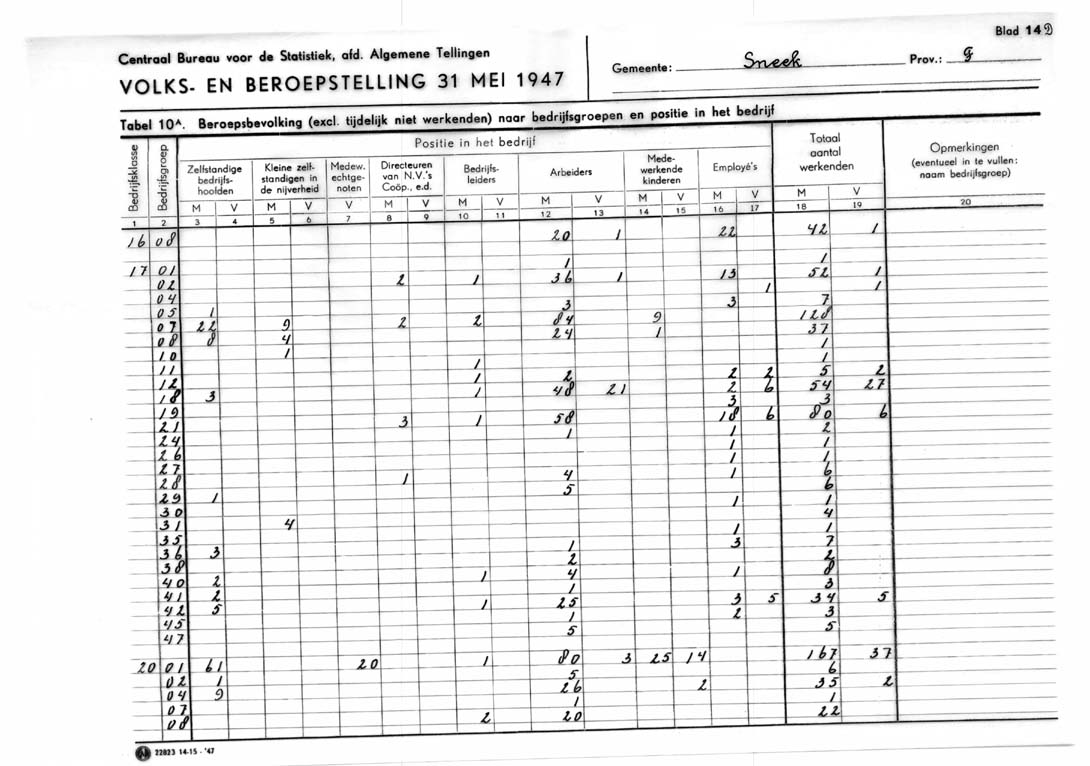 Blad 14 D
Centraal Bureau voor de Statistiek, afd. Algemene Tellingen
VOLKS- EN BEROEPSTELLING 31 MEI 1947
Gemeente: Sneek Prov.: F
Tabel 10A. Beroepsbevolking (excl. tijdelijk niet werkenden) naar bedrijfsgroepen en positie in het bedrijf
Bedrijfsklasse
Bedrijfsgroep
Positie in het bedrijf
Zelfstandige bedrijfs- hoofden
Kleine zelf- standigen in de nijverheid
Medew. echtge- noten
Directeuren van N.V.'s Coöp., e.d.
Bedrijfs- leiders
Arbeiders
Mede- werkende kinderen
Employé's
Totaal aantal werkenden
Opmerkingen (eventueel in te vullen: naam bedrijfsgroep)
M V M V V M V M V M V M V M V M V
1 2 3 4 5 6 7 8 9 10 11 12 13 14 15 16 17 18 19 20
16 08 20 1 22 42 1
17 01 1 1
02 2 1 36 1 13 52 1
04 1 1
05 1 3 3 7
07 22 9 2 2 84 9 128
08 8 4 24 1 37
10 1 1
11 1 1
12 1 2 2 2 5 2
18 3 1 48 21 2 6 54 27
19 3 3
21 3 1 58 18 6 80 6
24 1 1 2
26 1 1
27 1 1
28 1 4 1 6
29 1 5 6
30 1 1
31 4 4
35 1 1
36 3 1 3 7
38 2 2
40 2 1 4 1 8
41 2 1 3
42 5 1 25 3 5 34 5
45 1 2 3
47 5 5
20 01 61 20 1 80 3 25 14 167 37
02 1 5 6
04 9 26 2 35 2
07 1 1
08 2 20 22
22823 14-15 - '47